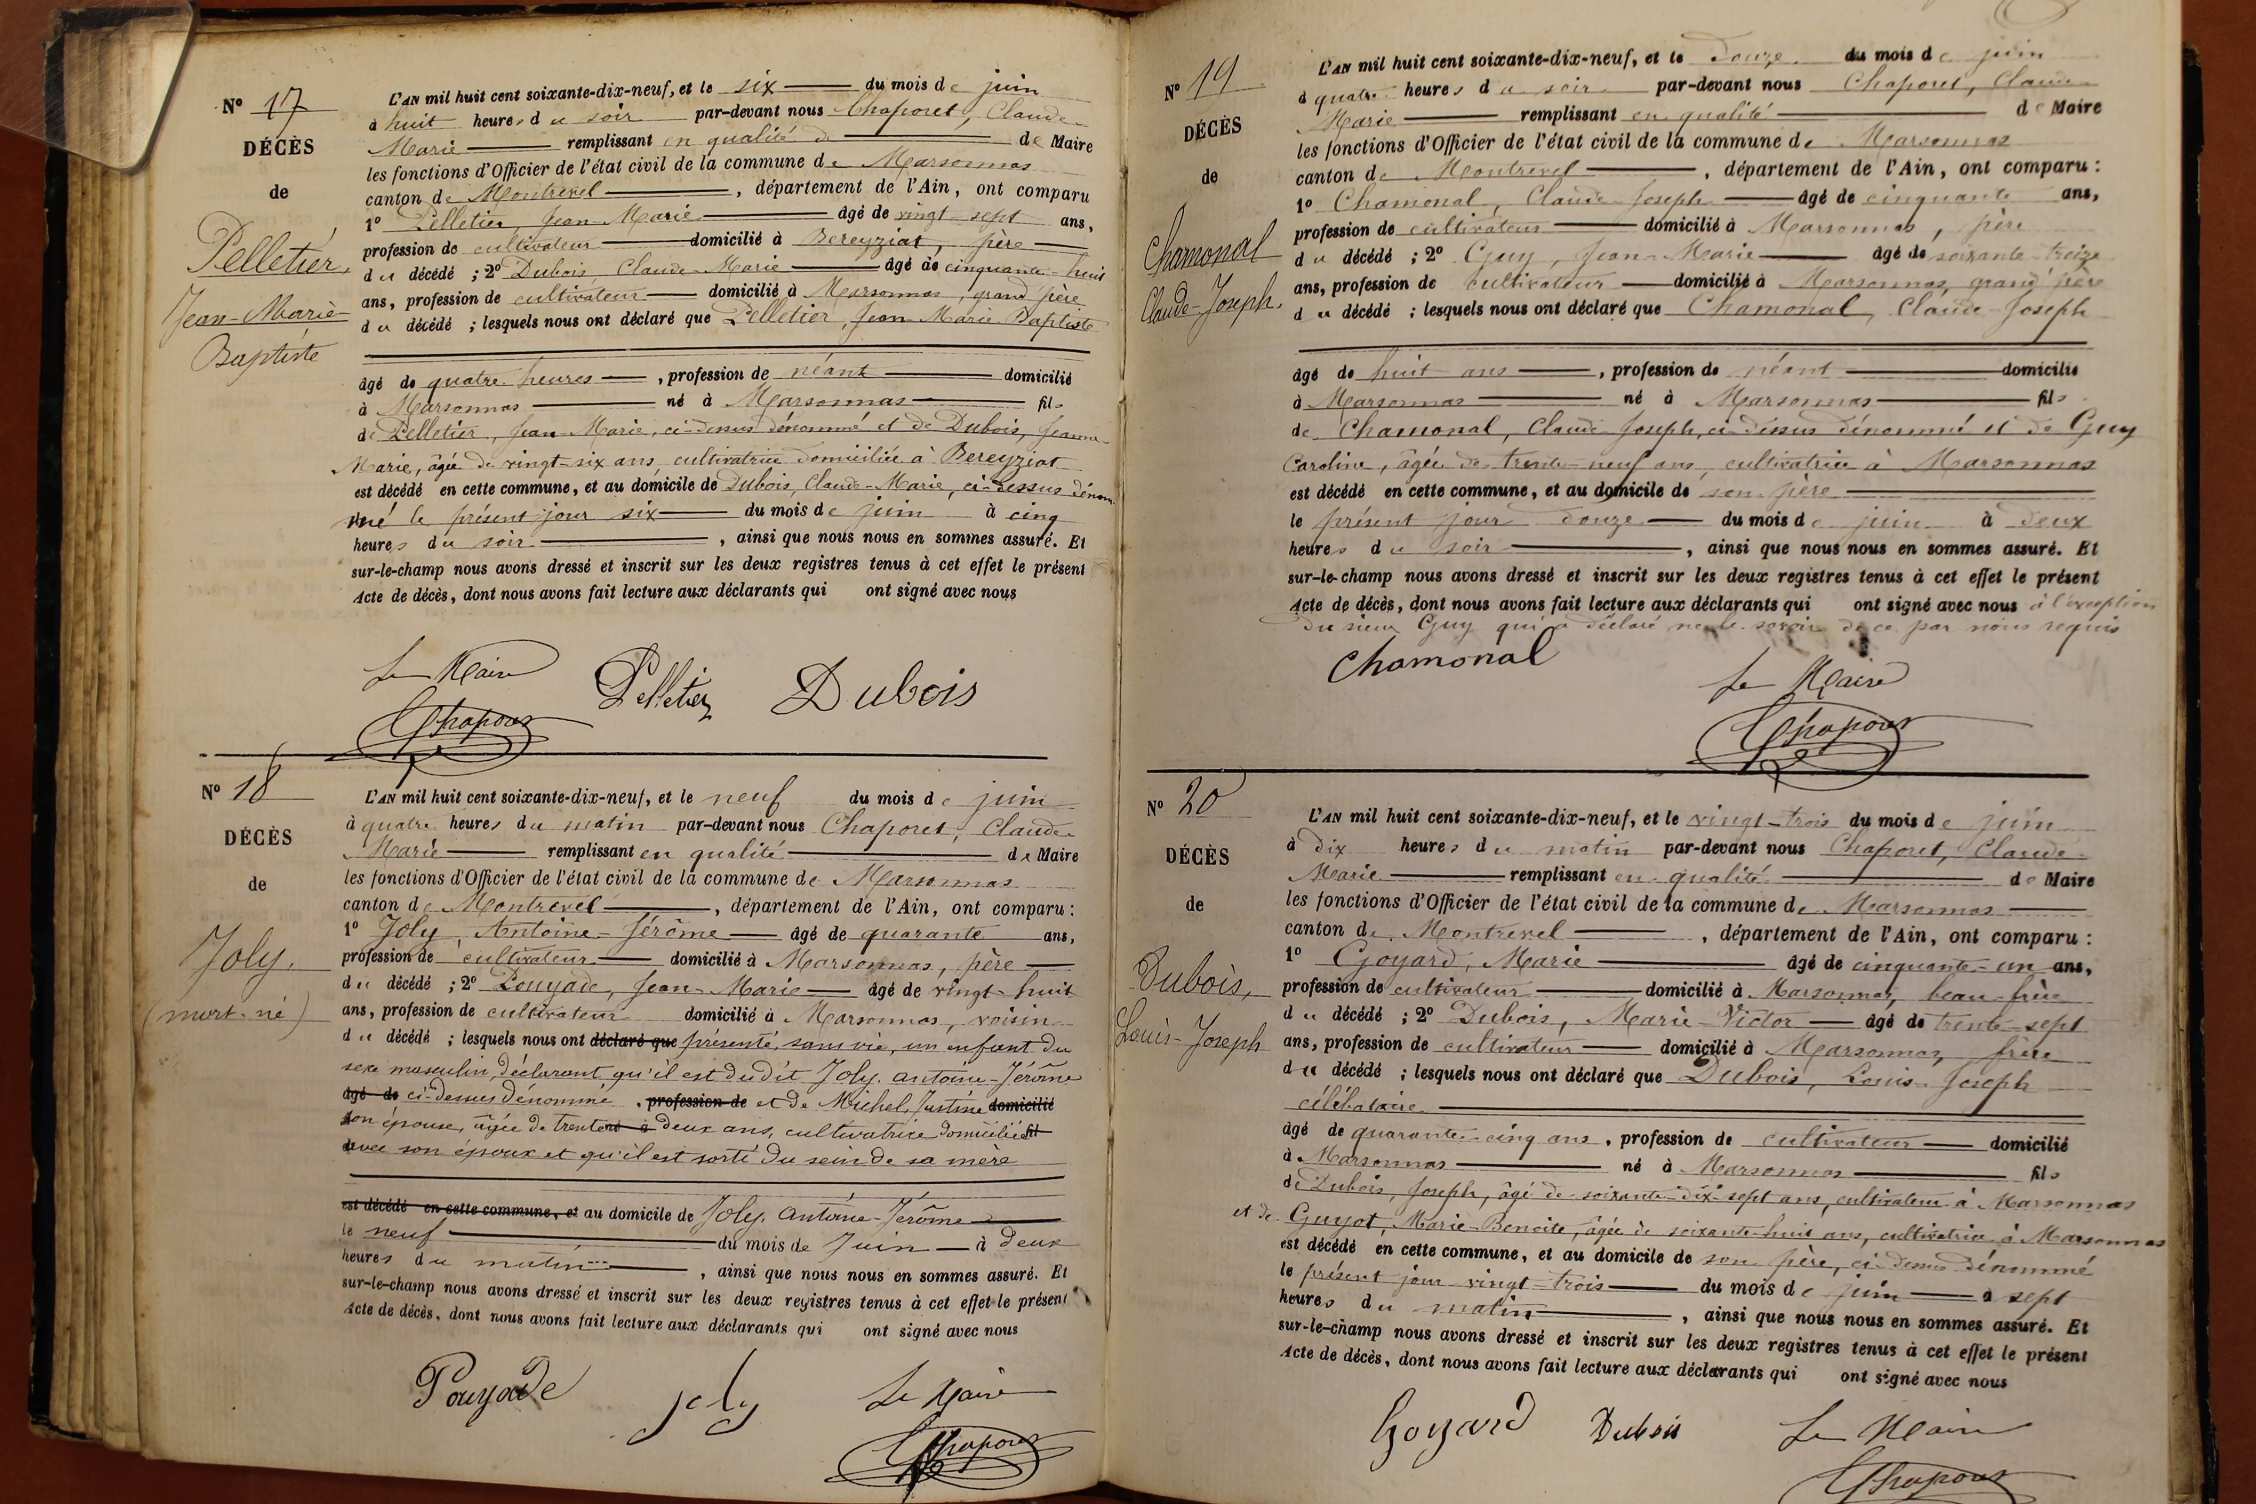 Nº 17
DÉCÈS
de
Pelletier,
Jean-Marie-
Baptiste
L'AN mil huit cent soixante-dix-neuf, et le six du mois de juin
à huit heures du soir par-devant nous Chaporet, Claude-
Marie remplissant en qualité de de Maire
les fonctions d'Officier de l'état civil de la commune de Marsonnas
canton de Montrevel, département de l'Ain, ont comparu
1º Pelletier, Jean-Marie âgé de vingt-sept ans,
profession de cultivateur domicilié à Bereyziat, père
du décédé ; 2º Dubois, Claude-Marie âgé de cinquante-huit
ans, profession de cultivateur domicilié à Marsonnas, grand'père
du décédé ; lesquels nous ont déclaré que Pelletier, Jean-Marie-Baptiste
âgé de quatre heures, profession de néant domicilié
à Marsonnas né à Marsonnas fils
de Pelletier, Jean-Marie, ci-dessus dénommé et de Dubois, Jeanne-
Marie, âgée de vingt-six ans, cultivatrice domiciliée à Bereyziat
est décédé en cette commune, et au domicile de Dubois, Claude-Marie, ci-dessus dénom
mé le présent jour six du mois de juin à cinq
heures du soir, ainsi que nous nous en sommes assuré. Et
sur-le-champ nous avons dressé et inscrit sur les deux registres tenus à cet effet le présent
Acte de décès, dont nous avons fait lecture aux déclarants qui ont signé avec nous
Le Maire
Pelletier Dubois
Chaporet
Nº 18
DÉCÈS
de
Joly.
(mort-né)
L'AN mil huit cent soixante-dix-neuf, et le neuf du mois de juin
à quatre heures du matin par-devant nous Chaporet, Claude-
Marie remplissant en qualité de Maire
les fonctions d'Officier de l'état civil de la commune de Marsonnas
canton de Montrevel, département de l'Ain, ont comparu :
1º Joly, Antoine-Jérôme âgé de quarante ans,
profession de cultivateur domicilié à Marsonnas, père
du décédé ; 2º Pouyade, Jean-Marie âgé de vingt-huit
ans, profession de cultivateur domicilié à Marsonnas, voisin
du décédé ; lesquels nous ont déclaré que présenté, sans vie, un enfant du
sexe masculin, déclarant qu'il est du dit Joly. antoine-Jérôme
âgé de ci-dessus dénommé, profession de et de Michel, Justine domicilié
son épouse, âgée de trente né à deux ans, cultivatrice domiciliée fil
avec son époux et qu'il est sorti du sein de sa mère
est décédé en cette commune, et au domicile de Joly. antoine-Jérôme
le neuf du mois de Juin à deux
heures du matin, ainsi que nous nous en sommes assuré. Et
sur-le-champ nous avons dressé et inscrit sur les deux registres tenus à cet effet le présent
Acte de décès, dont nous avons fait lecture aux déclarants qui ont signé avec nous
Pouyade joly Le Maire
Chaporet
Nº 19
DÉCÈS
de
Chamonal
Claude-Joseph.
L'AN mil huit cent soixante-dix-neuf, et le douze du mois de juin
à quatre heures du soir par-devant nous Chaporet, Claude
Marie remplissant en qualité de Maire
les fonctions d'Officier de l'état civil de la commune de Marsonnas
canton de Montrevel, département de l'Ain, ont comparu :
1º Chamonal, Claude-Joseph âgé de cinquante ans,
profession de cultivateur domicilié à Marsonnas, père
du décédé ; 2º Guy, Jean-Marie âgé de soixante-treize
ans, profession de cultivateur domicilié à Marsonnas, grand'père
du décédé ; lesquels nous ont déclaré que Chamonal, Claude-Joseph
âgé de huit ans, profession de néant domicilié
à Marsonnas né à Marsonnas fils
de Chamonal, Claude-Joseph, ci-dessus dénommé et de Guy
Caroline, âgée de trente-neuf ans, cultivatrice à Marsonnas
est décédé en cette commune, et au domicile de son père
le présent jour douze du mois de juin à deux
heures du soir, ainsi que nous nous en sommes assuré. Et
sur-le-champ nous avons dressé et inscrit sur les deux registres tenus à cet effet le présent
Acte de décès, dont nous avons fait lecture aux déclarants qui ont signé avec nous à l'exception
du sieur Guy qui a déclaré ne le savoir de ce par nous requis
Chamonal
Le Maire
Chaporet
Nº 20
DÉCÈS
de
Dubois,
Louis-Joseph
L'AN mil huit cent soixante-dix-neuf, et le vingt-trois du mois de juin
à dix heures du matin par-devant nous Chaporet, Claude-
Marie remplissant en qualité de Maire
les fonctions d'Officier de l'état civil de la commune de Marsonnas
canton de Montrevel, département de l'Ain, ont comparu :
1º Goyard, Marie âgé de cinquante-un ans,
profession de cultivateur domicilié à Marsonnas, beau-frère
du décédé ; 2º Dubois, Marie-Victor âgé de trente-sept
ans, profession de cultivateur domicilié à Marsonnas, frère
du décédé ; lesquels nous ont déclaré que Dubois, Louis-Joseph
célibataire
âgé de quarante-cinq ans, profession de cultivateur domicilié
à Marsonnas né à Marsonnas fils
de Dubois, Joseph, âgé de soixante-dix-sept ans, cultivateur à Marsonnas
et de Guyot, Marie-Benoite, âgée de soixante-huit ans, cultivatrice à Marsonnas
est décédé en cette commune, et au domicile de son père, ci-dessus dénommé
le présent jour vingt-trois du mois de juin à sept
heures du matin, ainsi que nous nous en sommes assuré. Et
sur-le-champ nous avons dressé et inscrit sur les deux registres tenus à cet effet le présent
Acte de décès, dont nous avons fait lecture aux déclarants qui ont signé avec nous
Goyard Dubois Le Maire
Chaporet